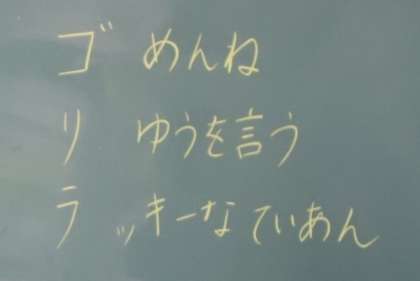 ゴ めんね
リ ゆうを言う
ラ ッキーなていあん